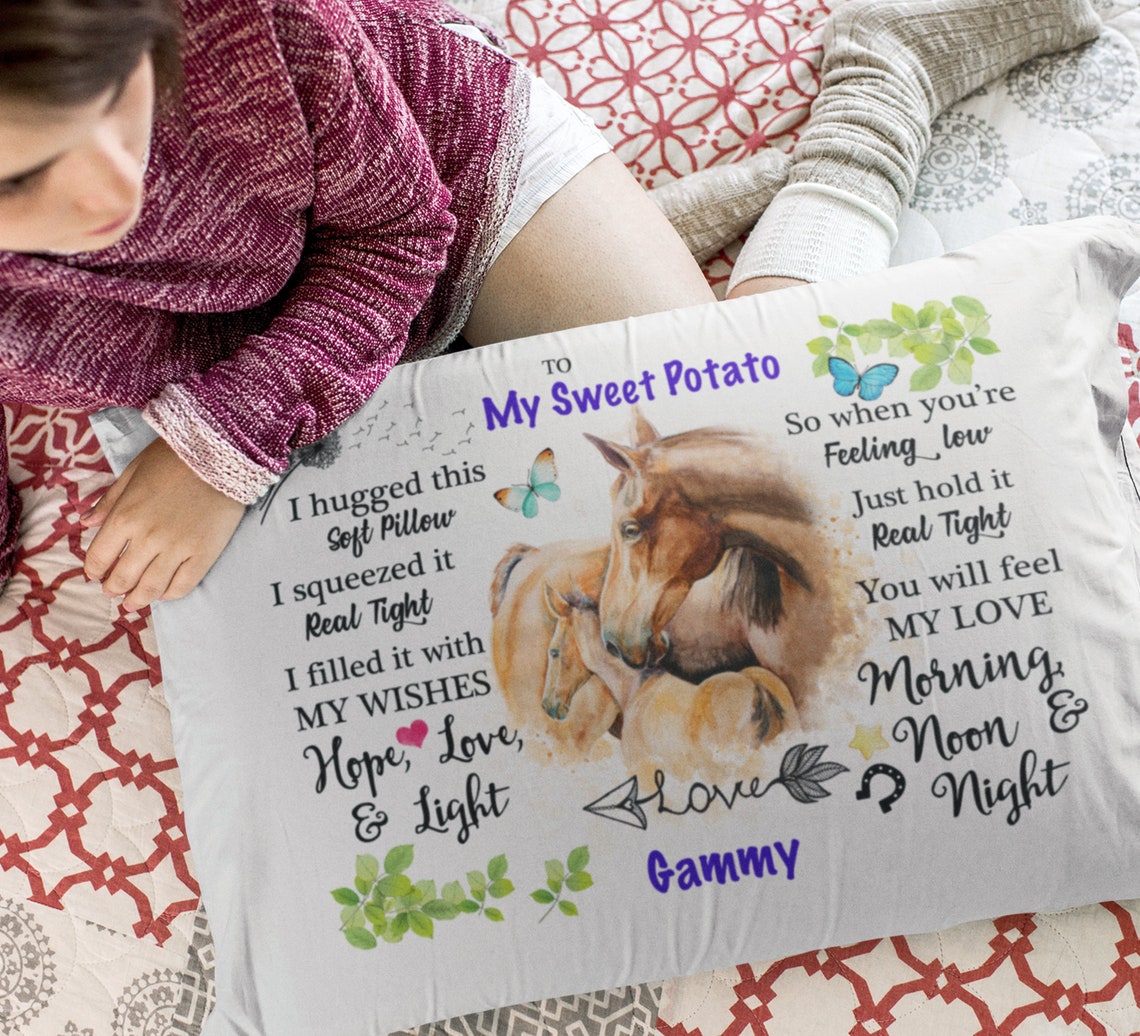 TO
My Sweet Potato
I hugged this
Soft Pillow
I squeezed it
Real Tight
I filled it with
MY WISHES
Hope, Love,
& Light
So when you're
Feeling low
Just hold it
Real Tight
You will feel
MY LOVE
Morning,
Noon &
Night
Love
Gammy